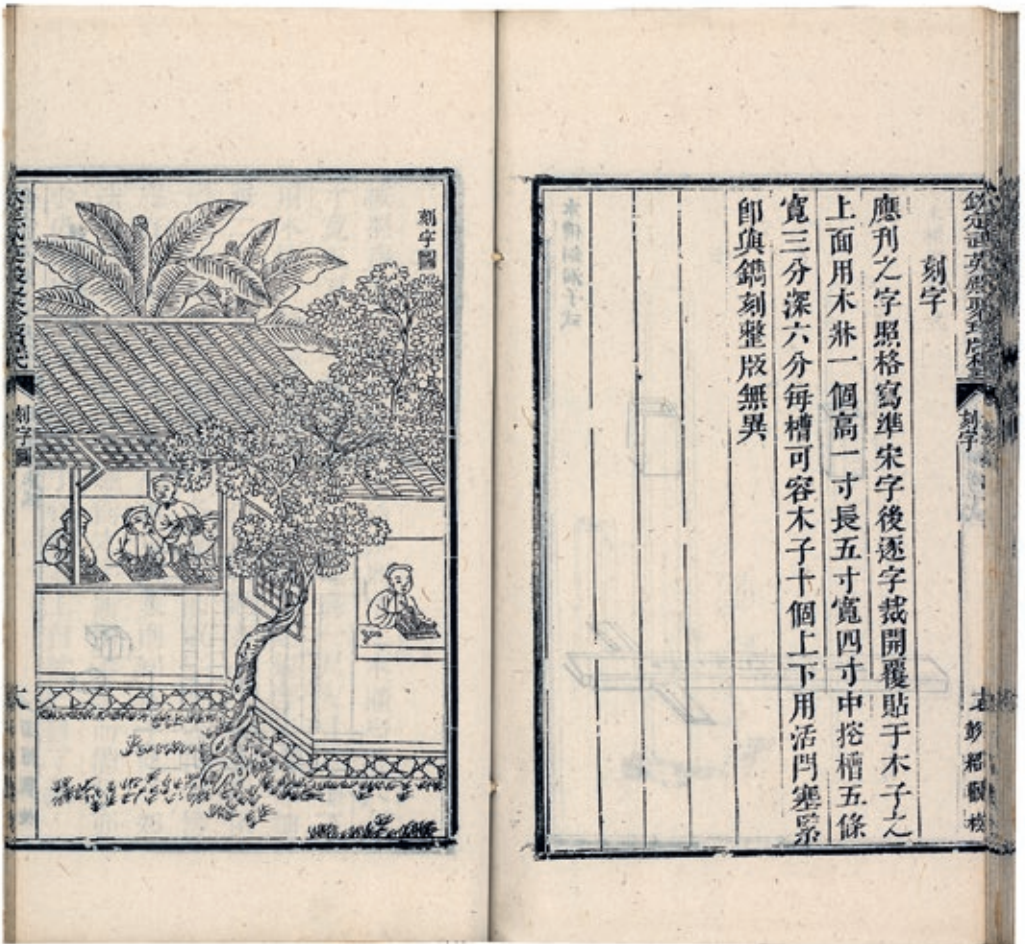 欽定武英殿聚珍版程
刻字
刻字
應刊之字照格寫準宋字後逐字裁開覆貼于木子之
上面用木牀一個高一寸長五寸寬四寸中挖槽五條
寬三分深六分每槽可容木子十個上下用活閂塞緊
卽與鐫刻整版無異
刻字圖
刻字圖